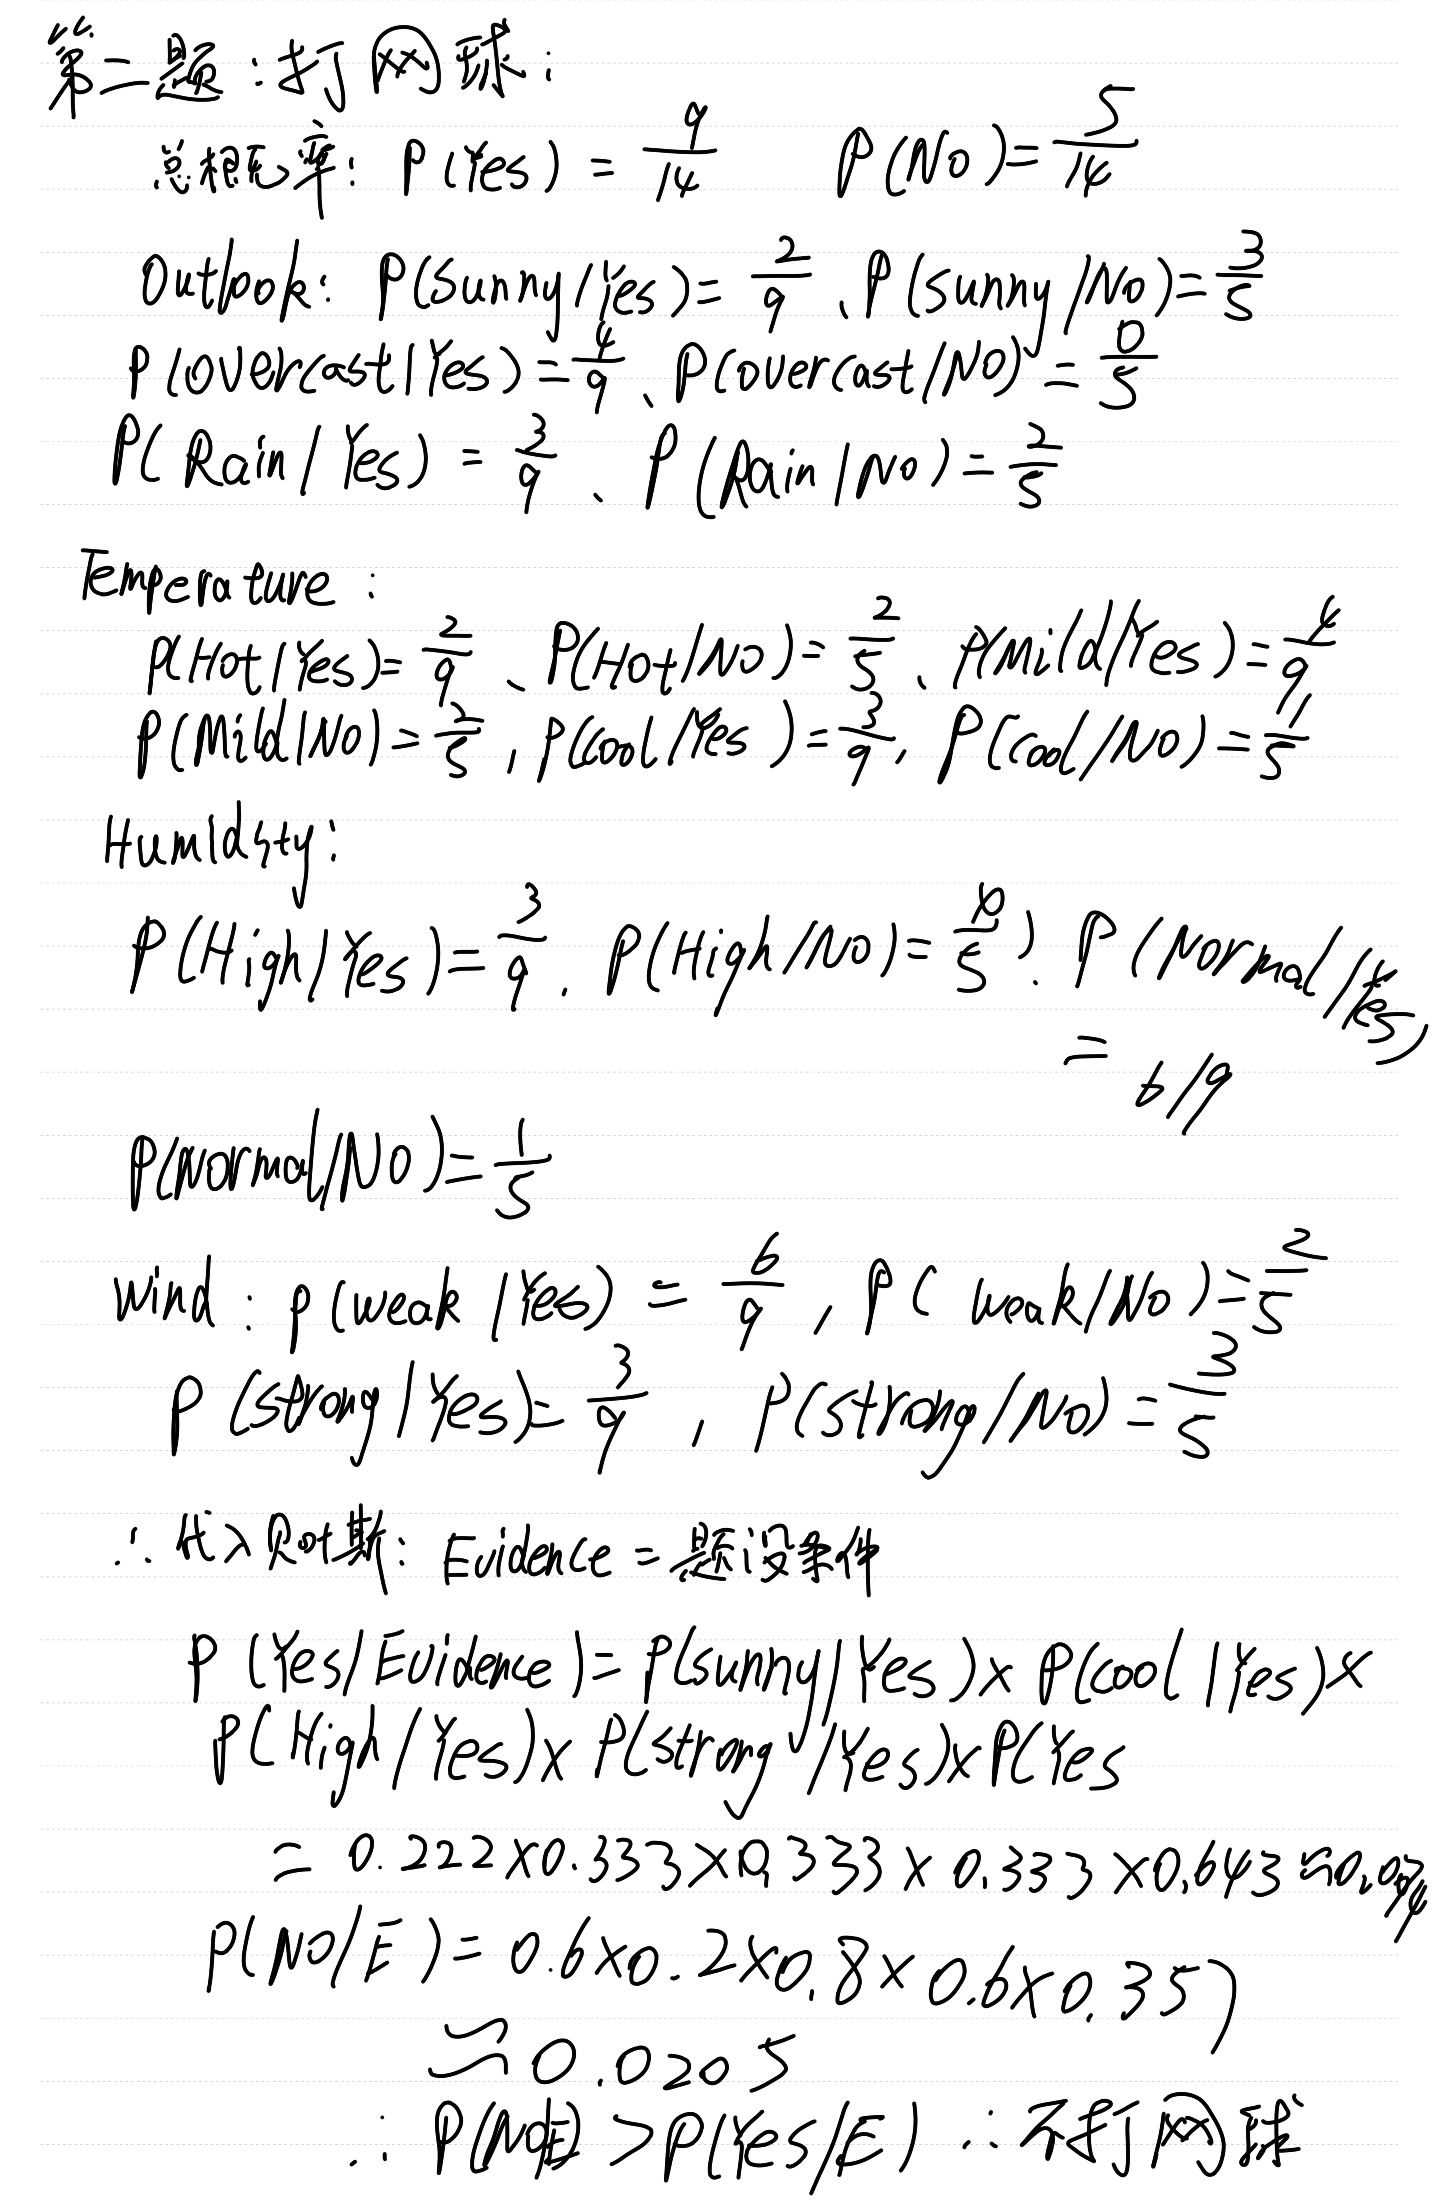 第二题:打网球:
总概率: P(Yes) = 9/14 P(No)= 5/14
Outlook: P(Sunny/Yes)= 2/9 、P(sunny/No)= 3/5
P(overcast|Yes)= 4/9 、P(overcast/NO)= 0/5
P(Rain/Yes) = 3/9 、P(Rain/No)= 2/5
Temperature:
P(Hot/Yes)= 2/9 、P(Hot/No)= 2/5 、P(Mild/Yes)= 4/9
P(Mild/No)= 2/5 , P(cool/Yes)= 3/9 , P(cool/No)= 1/5
Humidsty:
P(High/Yes)= 3/9 . P(High/No)= /5 ). P(Normal/Yes)
= 6/9
P(Normal/NO)= 1/5
Wind: p(weak/Yes) = 6/9 , P(weak/No)= 2/5
P(strong/Yes)= 3/9 , P(strong/No)= 3/5
∴代入贝叶斯: Evidence = 题设条件
P(Yes/Evidence)= P(sunny/Yes)× P(cool|Yes)×
P(High/Yes)× P(strong/Yes)×P(Yes
= 0.222×0.333×0.333×0.333×0.643≈
P(NO/E)= 0.6×0.2×0.8×0.6×0.357
≈0.0205
∴ P(No/E) > P(Yes/E) ∴不打网球